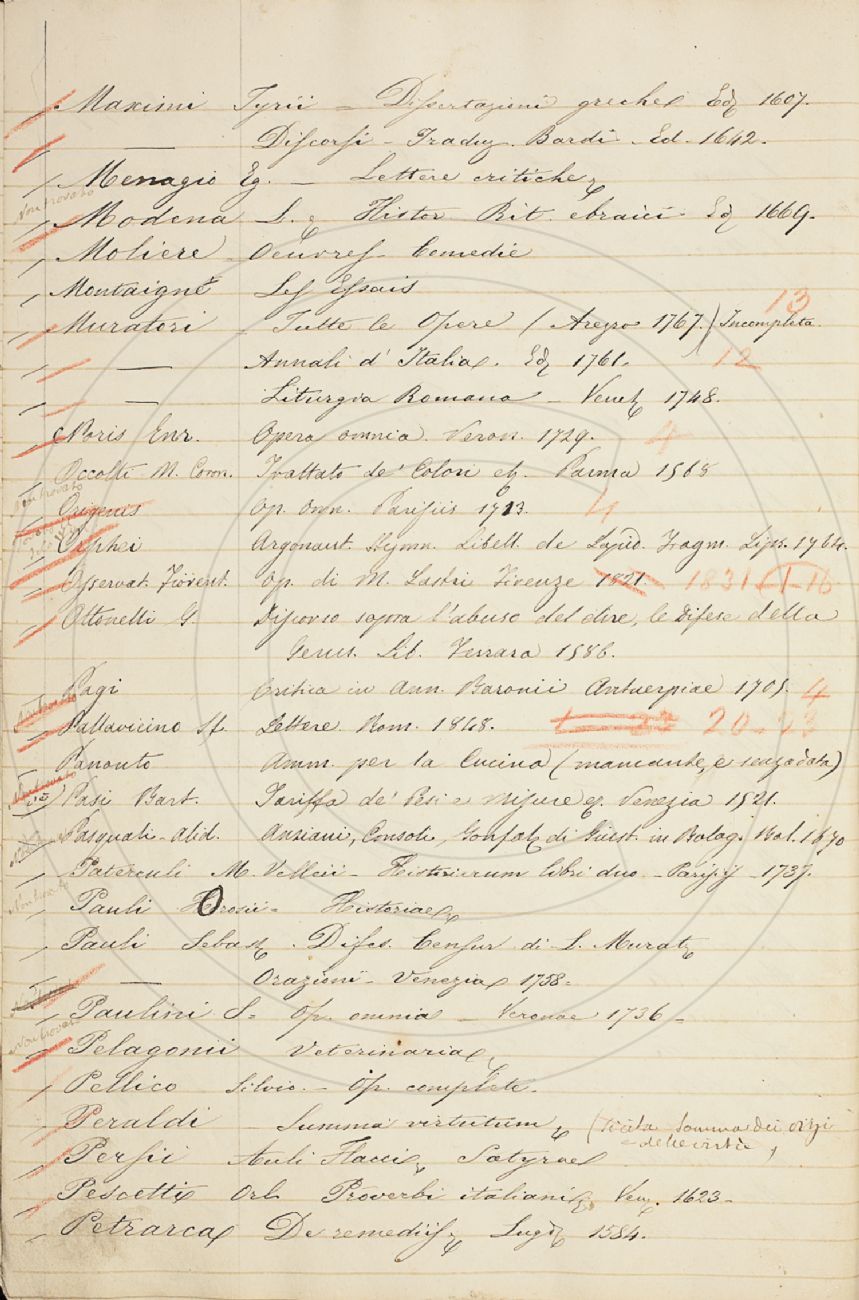 Maximi Tyrii = Dissertazioni greche Ed. 1607.
— Discorsi - Traduz. Bardi. Ed. 1642.
Menagio Eg. — Lettere critiche
Non trovato
Modena L. Histor. Rit. ebraici Ed. 1669.
Moliere Oeuvres Comedie
Montaigne Les Essais
13
Muratori Tutte le Opere (Arezzo 1767.) Incompleta.
— Annali d'Italia. Ed. 1761. 12
— Liturgia Romana - Venet. 1748.
Noris Enr. Opera omnia. Veron. 1729. 4
Occolti M. Coron. Trattato de' Colori Parma 1568
Non trovato
Origenis Op. Omn. Parisiis 1733. 4
Orphei Argonaut. Hymn. Libell. de Lapid. Fragm. Lips. 1764.
Osservat. Fiorent. Op. di M. Lastri Firenze 1821. 1831 (1-16
Ottonelli G. Discorso sopra l'abuso del dire, le Difese della
Gerus. Lib. Ferrara 1586.
Pagi Critica in Ann. Baronii Antuerpiae 1705. 4
Pallavicino Sf. Lettere. Rom. 1848. 20-23
Panonto Amm. per la Cucina (mancante, e senza data)
Non trovato
Pasi Bart. Tariffa de' Pesi e Misure Venezia 1521.
Pasquali-Alid. Anziani, Consoli, Gonfal. di Giust. in Bolog. Bol. 1670
Paterculi M. Velleii - Historiarum libri duo - Parisiis - 1737.
Non trovato
Pauli Orosii = Historiae
Pauli Sebast. Difes. Censur. di L. Murat.
— Orazioni - Venezia 1738=
Paulini S= Op. omnia - Veronae 1736 -
Non trovato
Pelagonii Veterinaria
Pellico Silvio - Op. complete.
Peraldi Summa virtutum (Tit.ta Somma dei vizi
e delle virtù)
Persii Auli Flacci Satyrae
Pescetti Orl. Proverbi italiani Ven. 1623-
Petrarca De remediis Lugd. 1584.